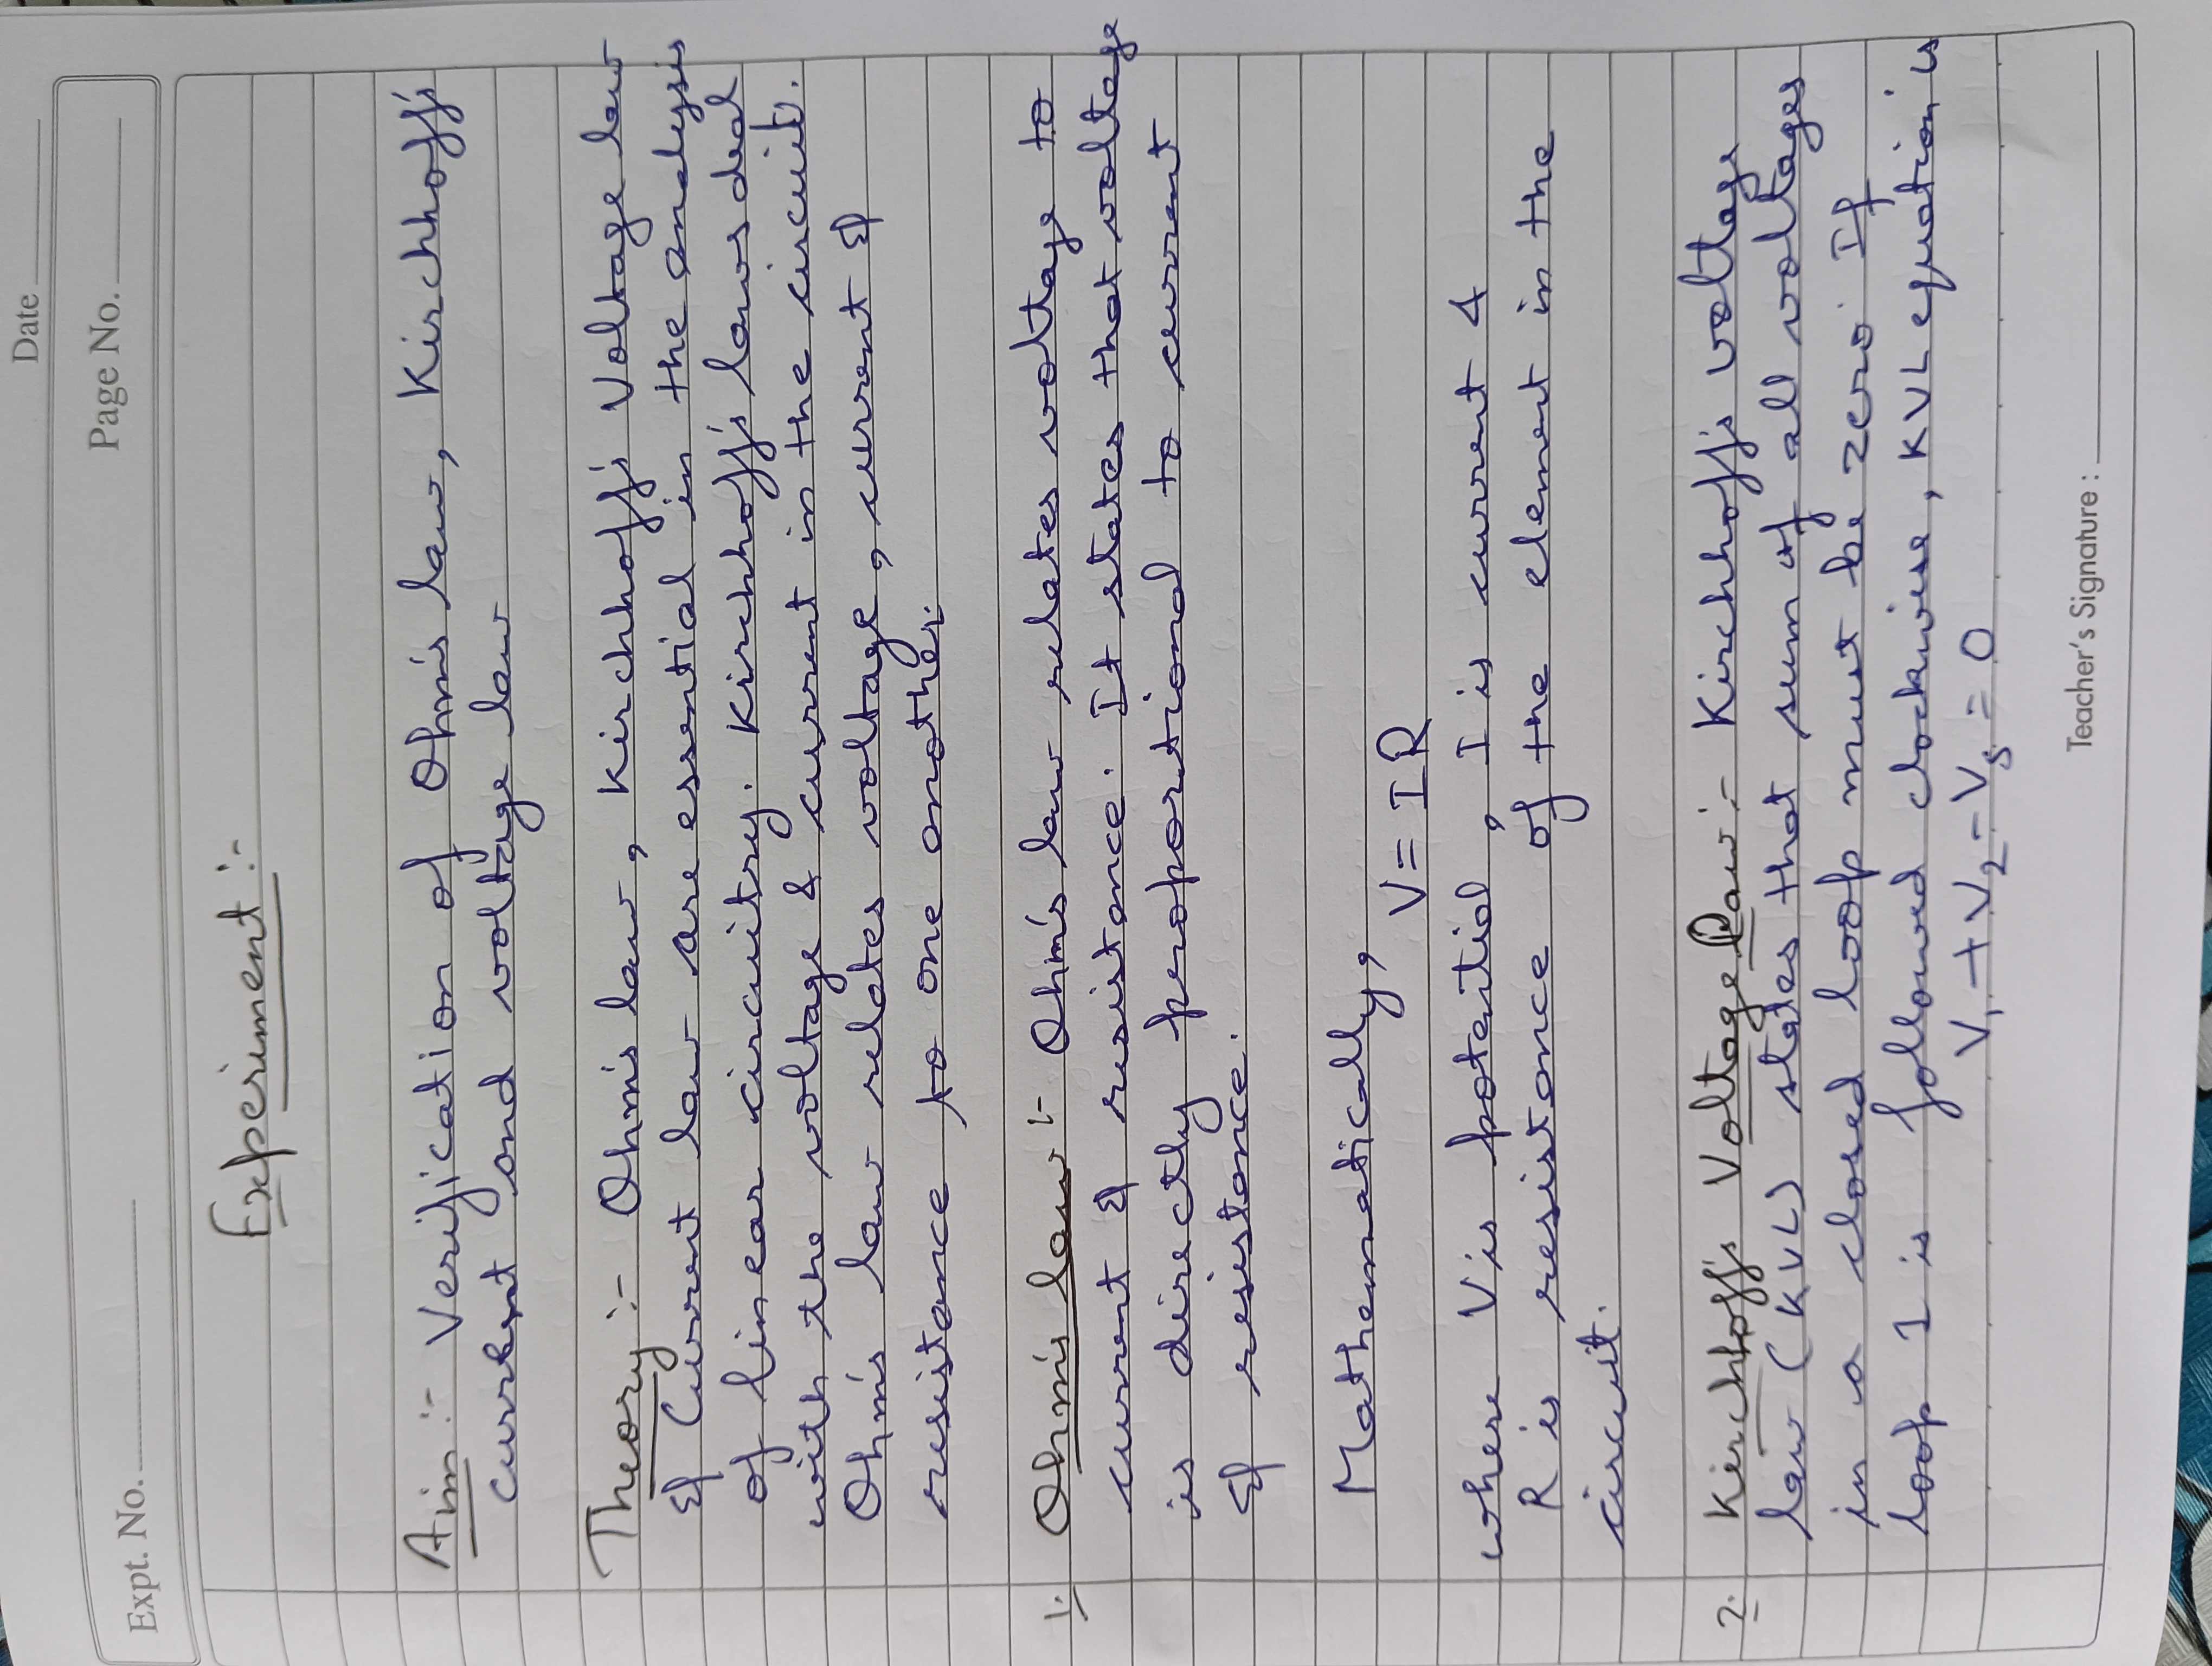 Date
Expt. No.
Page No.
Experiment :-
Aim :- Verification of Ohm's law, Kirchhoff's
current and voltage law
Theory :- Ohm's law, Kirchhoff's Voltage law
& Current law are essential in the analysis
of linear circuitry. Kirchhoff's laws deal
with the voltage & current in the circuit.
Ohm's law relates voltage, current &
resistance to one another.
1. Ohm's law :- Ohm's law relates voltage to
current & resistance. It states that voltage
is directly proportional to current
& resistance.
Mathematically,
V = IR
where V is potential, I is current &
R is resistance of the element in the
circuit.
2. Kirchhoff's Voltage Law :- Kirchhoff's voltage
law (KVL) states that sum of all voltages
in a closed loop must be zero. If
loop 1 is followed clockwise, KVL equation is
V₁ + V₂ - Vₛ = 0
Teacher's Signature :